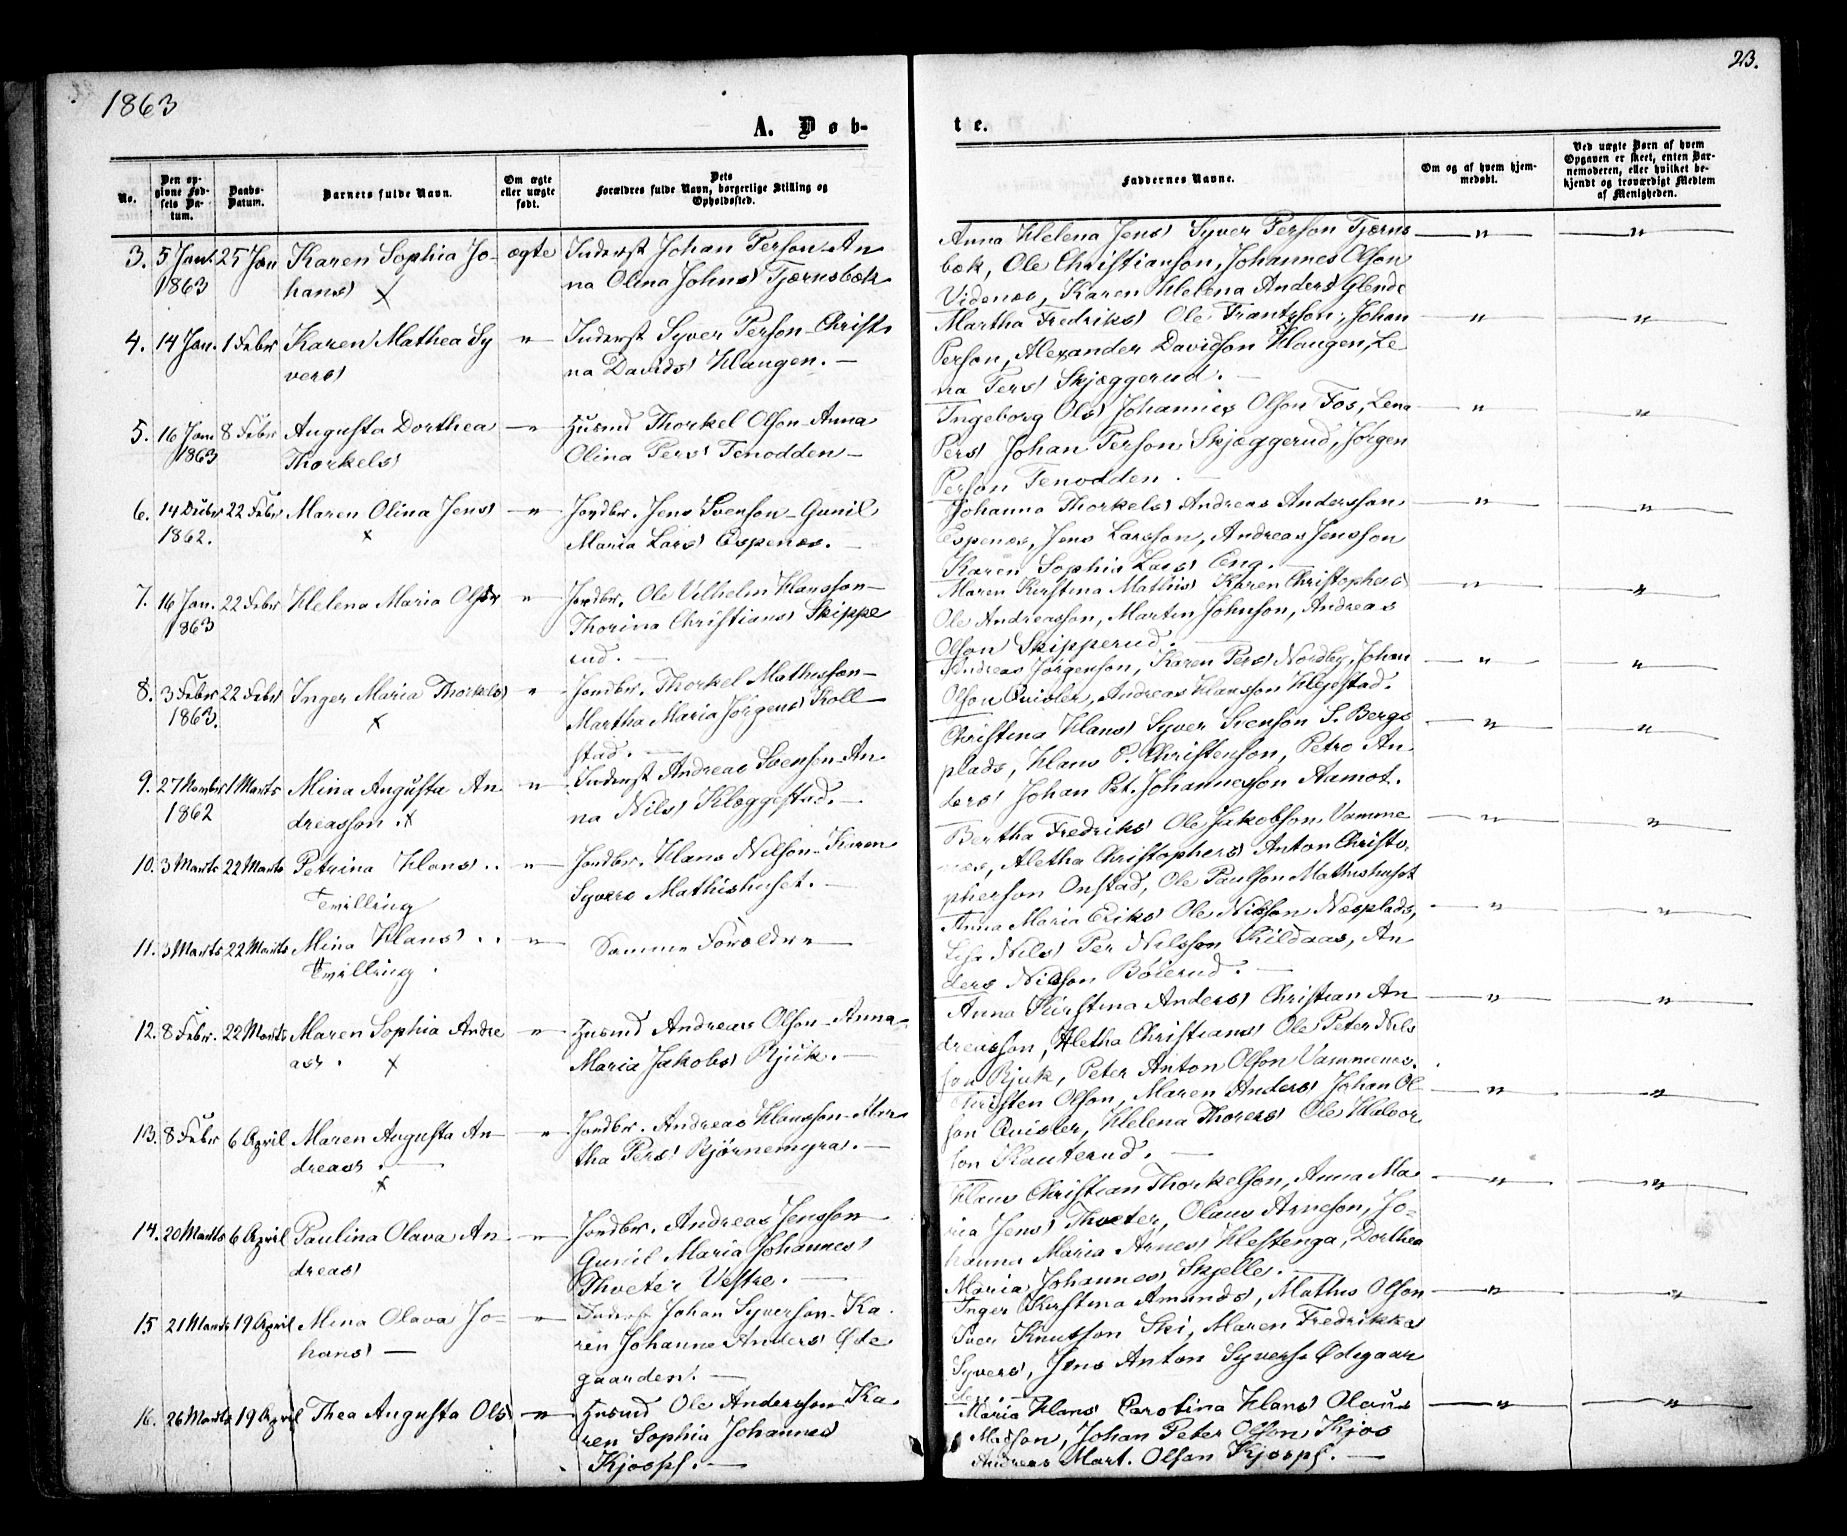 1863
23.
A. Døb-
te.
No.
Den op-
givne Fød-
sels Da-
tum.
Daabs-
Datum.
Barnets fulde Navn.
Om ægte
eller uægte
født.
Dets
Forældres fulde Navn, borgerlige Stilling og
Opholdssted.
Faddernes Navne.
Om og af hvem hjem-
medøbt.
Ved uægte Børn af hvem
Opgaven er skeet, enten Bar-
nemoderen, eller hvilket be-
kjendt og troværdigt Medlem
af Menigheden.
3. 5 Jan. 25 Jan Karen Sophia Jo- ægte Inderst Johan Person - An
1863 hans x na Olina Johns Tjærnsbæk
Anna Helena Jens Syver Person Tjærns
bæk, Ole Christianson, Johannes Olson
Videnæs, Karen Helena Anders Glende
4. 14 Jan. 1 Febr Karen Mathea Sy - " - Inderst Syver Person - Christi
vers na Davids Haugen. -
Martha Fredriks Ole Frantsson, Johan
Person, Alexander Davidson Haugen, Le
na Pers Skjæggerud. -
5. 16 Jan 8 Febr Augusta Dorthea - " - Husmd Thorkel Olson - Anna
1863 Thorkels Olina Pers Tenodden -
Ingeborg Ols Johannes Olson Fos, Lena
Pers Johan Person Skjæggerud, Jørgen
Person Tenodden. -
6. 14 Decbr 22 Febr Maren Olina Jens - " - Jordbr. Jens Svenson - Gunil
1862. x Maria Lars Espenæs. -
Johanna Thorkels Andreas Andersson
Espenæs, Jens Larsson, Andreas Jensson
Karen Sophia Lars Eng. -
7. 16 Jan. 22 Febr Helena Maria Ols - " - Jordbr. Ole Vilhelm Hansson -
1863 Thorina Christians Skippe
rud. -
Maren Kirstina Mathis Karen Christophers
Ole Andreasson, Martin Johnson, Andreas
Olson Skipperud. -
8. 3 Febr 22 Febr Inger Maria Thorkels " Jordbr. Thorkel Mathisson -
1863. x Martha Maria Jørgens Koll
stad. -
Andreas Jørgenson, Karen Pers Nordby, Johan
Olson Qvisler, Andreas Hansson Hejestad.
9. 27 Novmbr 1 Marts Mina Augusta An - " - Inderst Andreas Svenson - An
1862 dreasson. x na Nils Klæggestad. -
Christina Hans Syver Svenson S. Bergs
plads, Hans P. Christenson, Petro An
ders Johan Pet. Johannesson Aamot.
10. 3 Marts 22 Marts Petrina Hans . . - " - Jordbr. Hans Nilson - Karen
Tvilling Syvers Mathishuset. -
Bertha Fredriks Ole Jakobson Vamme
næs, Aletha Christophers Anton Christo
pherson Onstad, Ole Paulson Mathishuset
11. 3 Marts 22 Marts Mina Hans . . - " - Samme Forældre -
Tvilling.
Anna Maria Eriks Ole Nilsson Næsplads,
Nils Per Nilsson Kildaas, An
ders Nilsson Bøierud. -
12. 8 Febr. 22 Marts Maren Sophia Andre - " - Husmd Andreas Olson - Anna
ass. x Maria Jakobs Rjuk. -
Anna Kirstina Anders Christian An
dreasson, Aletha Christians Ole Peter Nils
son Rjuk, Peter Anton Olson Vammenæs.
13. 8 Febr 6 April Maren Augusta An - " - Jordbr. Andreas Hansson - Mar
dreass. - x tha Pers Bjørnemyra. -
Christen Olson, Maren Anders Johan Ol
son Qvisler, Helena Thorers Ole Halvor
son Kauterud. -
14. 20 Marts 6 April Paulina Olava An - " - Jordbr. Andreas Jensson -
dreas Gunil Maria Johannes
Thveter Vestre. -
Hans Christian Thorkelson, Anna Ma
ria Jens Thveter, Olaus Arneson, Jo-
hanna Maria Arnes Hestenga, Dorthea
Maria Johannes Skjelle. -
15 21 Marts 19 April Mina Olava Jo- - " - Inderst Johan Syverson - Ka
hans - ren Johanne Anders Øde
gaarden. -
Inger Kirstina Amunds, Mathis Olson
Iver Knutson Ski, Maren Fredrikka
Syvers, Jens Anton Syvers Ødegaar
den. -
16. 26 Marts 19 April Thea Augusta Ols - " - Husmd Ole Andersson - Ka
ren Sophia Johannes
Kjospl. -
Maria Hans Carolina Hans Olaus
Madson, Johan Peter Olson Kjos
Andreas Mart. Olson Kjospl. -